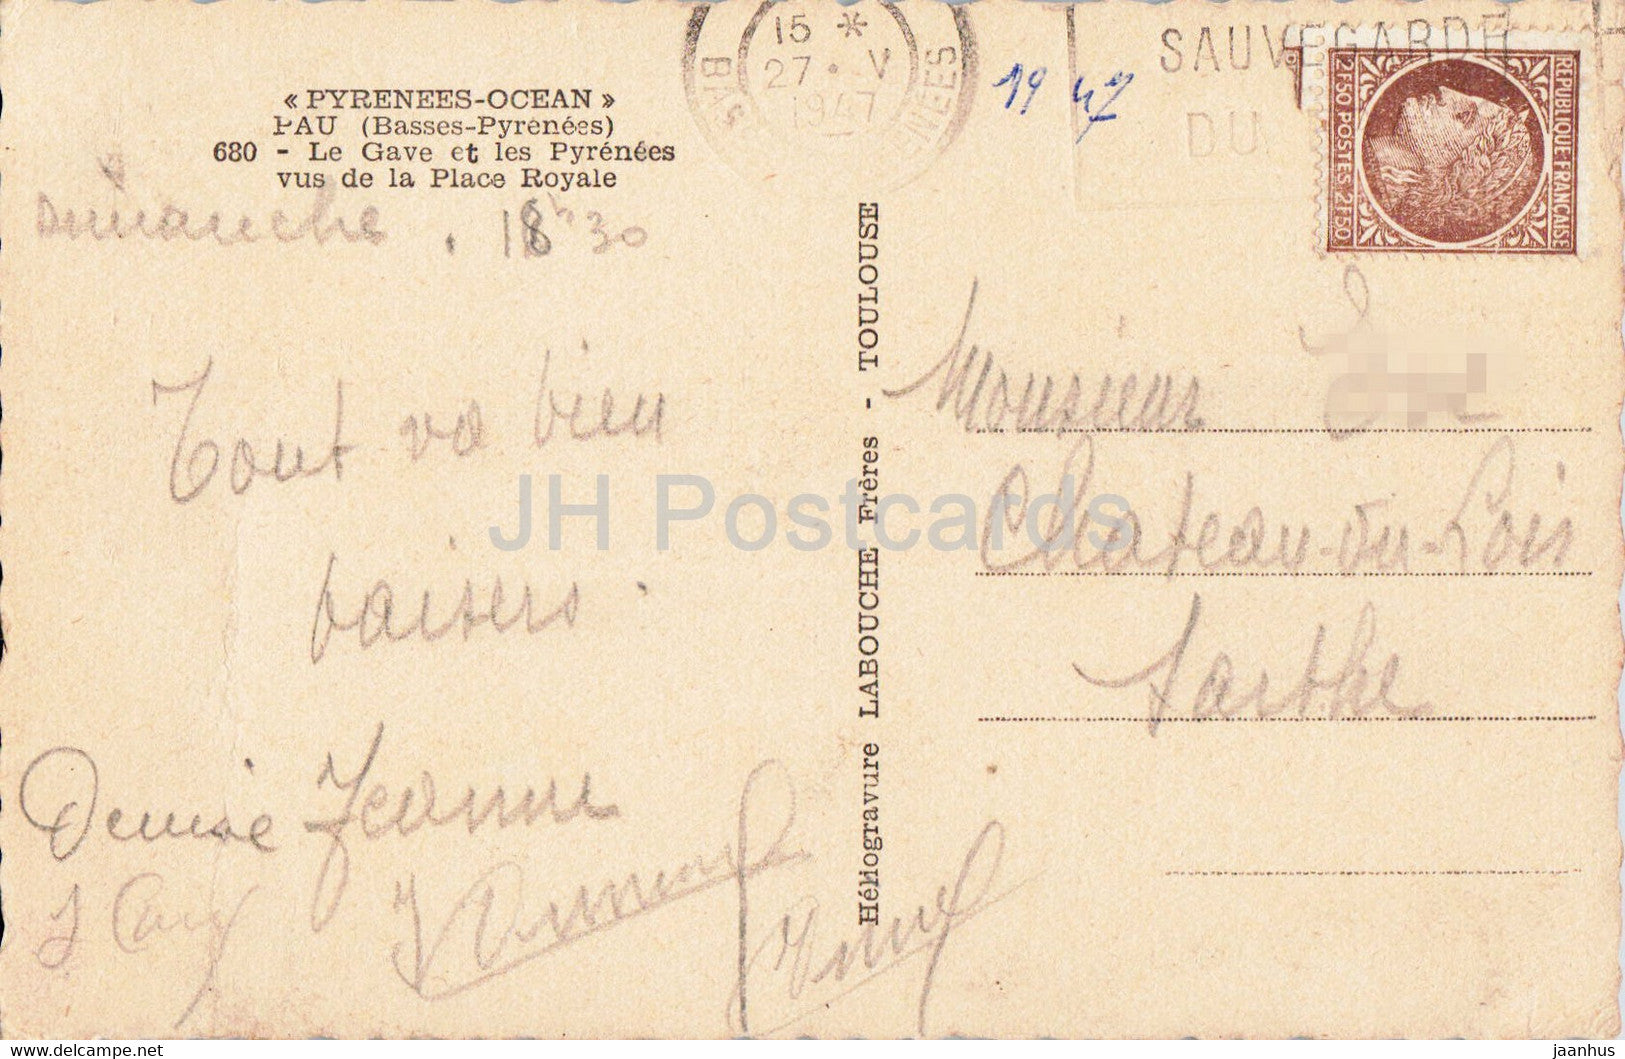 « PYRENEES-OCEAN »
PAU (Basses-Pyrénées)
680 - Le Gave et les Pyrénées
vus de la Place Royale
Dimanche . 18h30
Tout va bien
baisers.
Denise Jeanne
Héliogravure LABOUCHE Frères - TOULOUSE
15 *
27 · V
1947
BAS NEES
19 47
SAUVEGARDE
DU
REPUBLIQUE FRANÇAISE
2F50 POSTES 2F50
Monsieur
Chateau-du-Loir
Sarthe
JH Postcards
delcampe.net
jaanhus